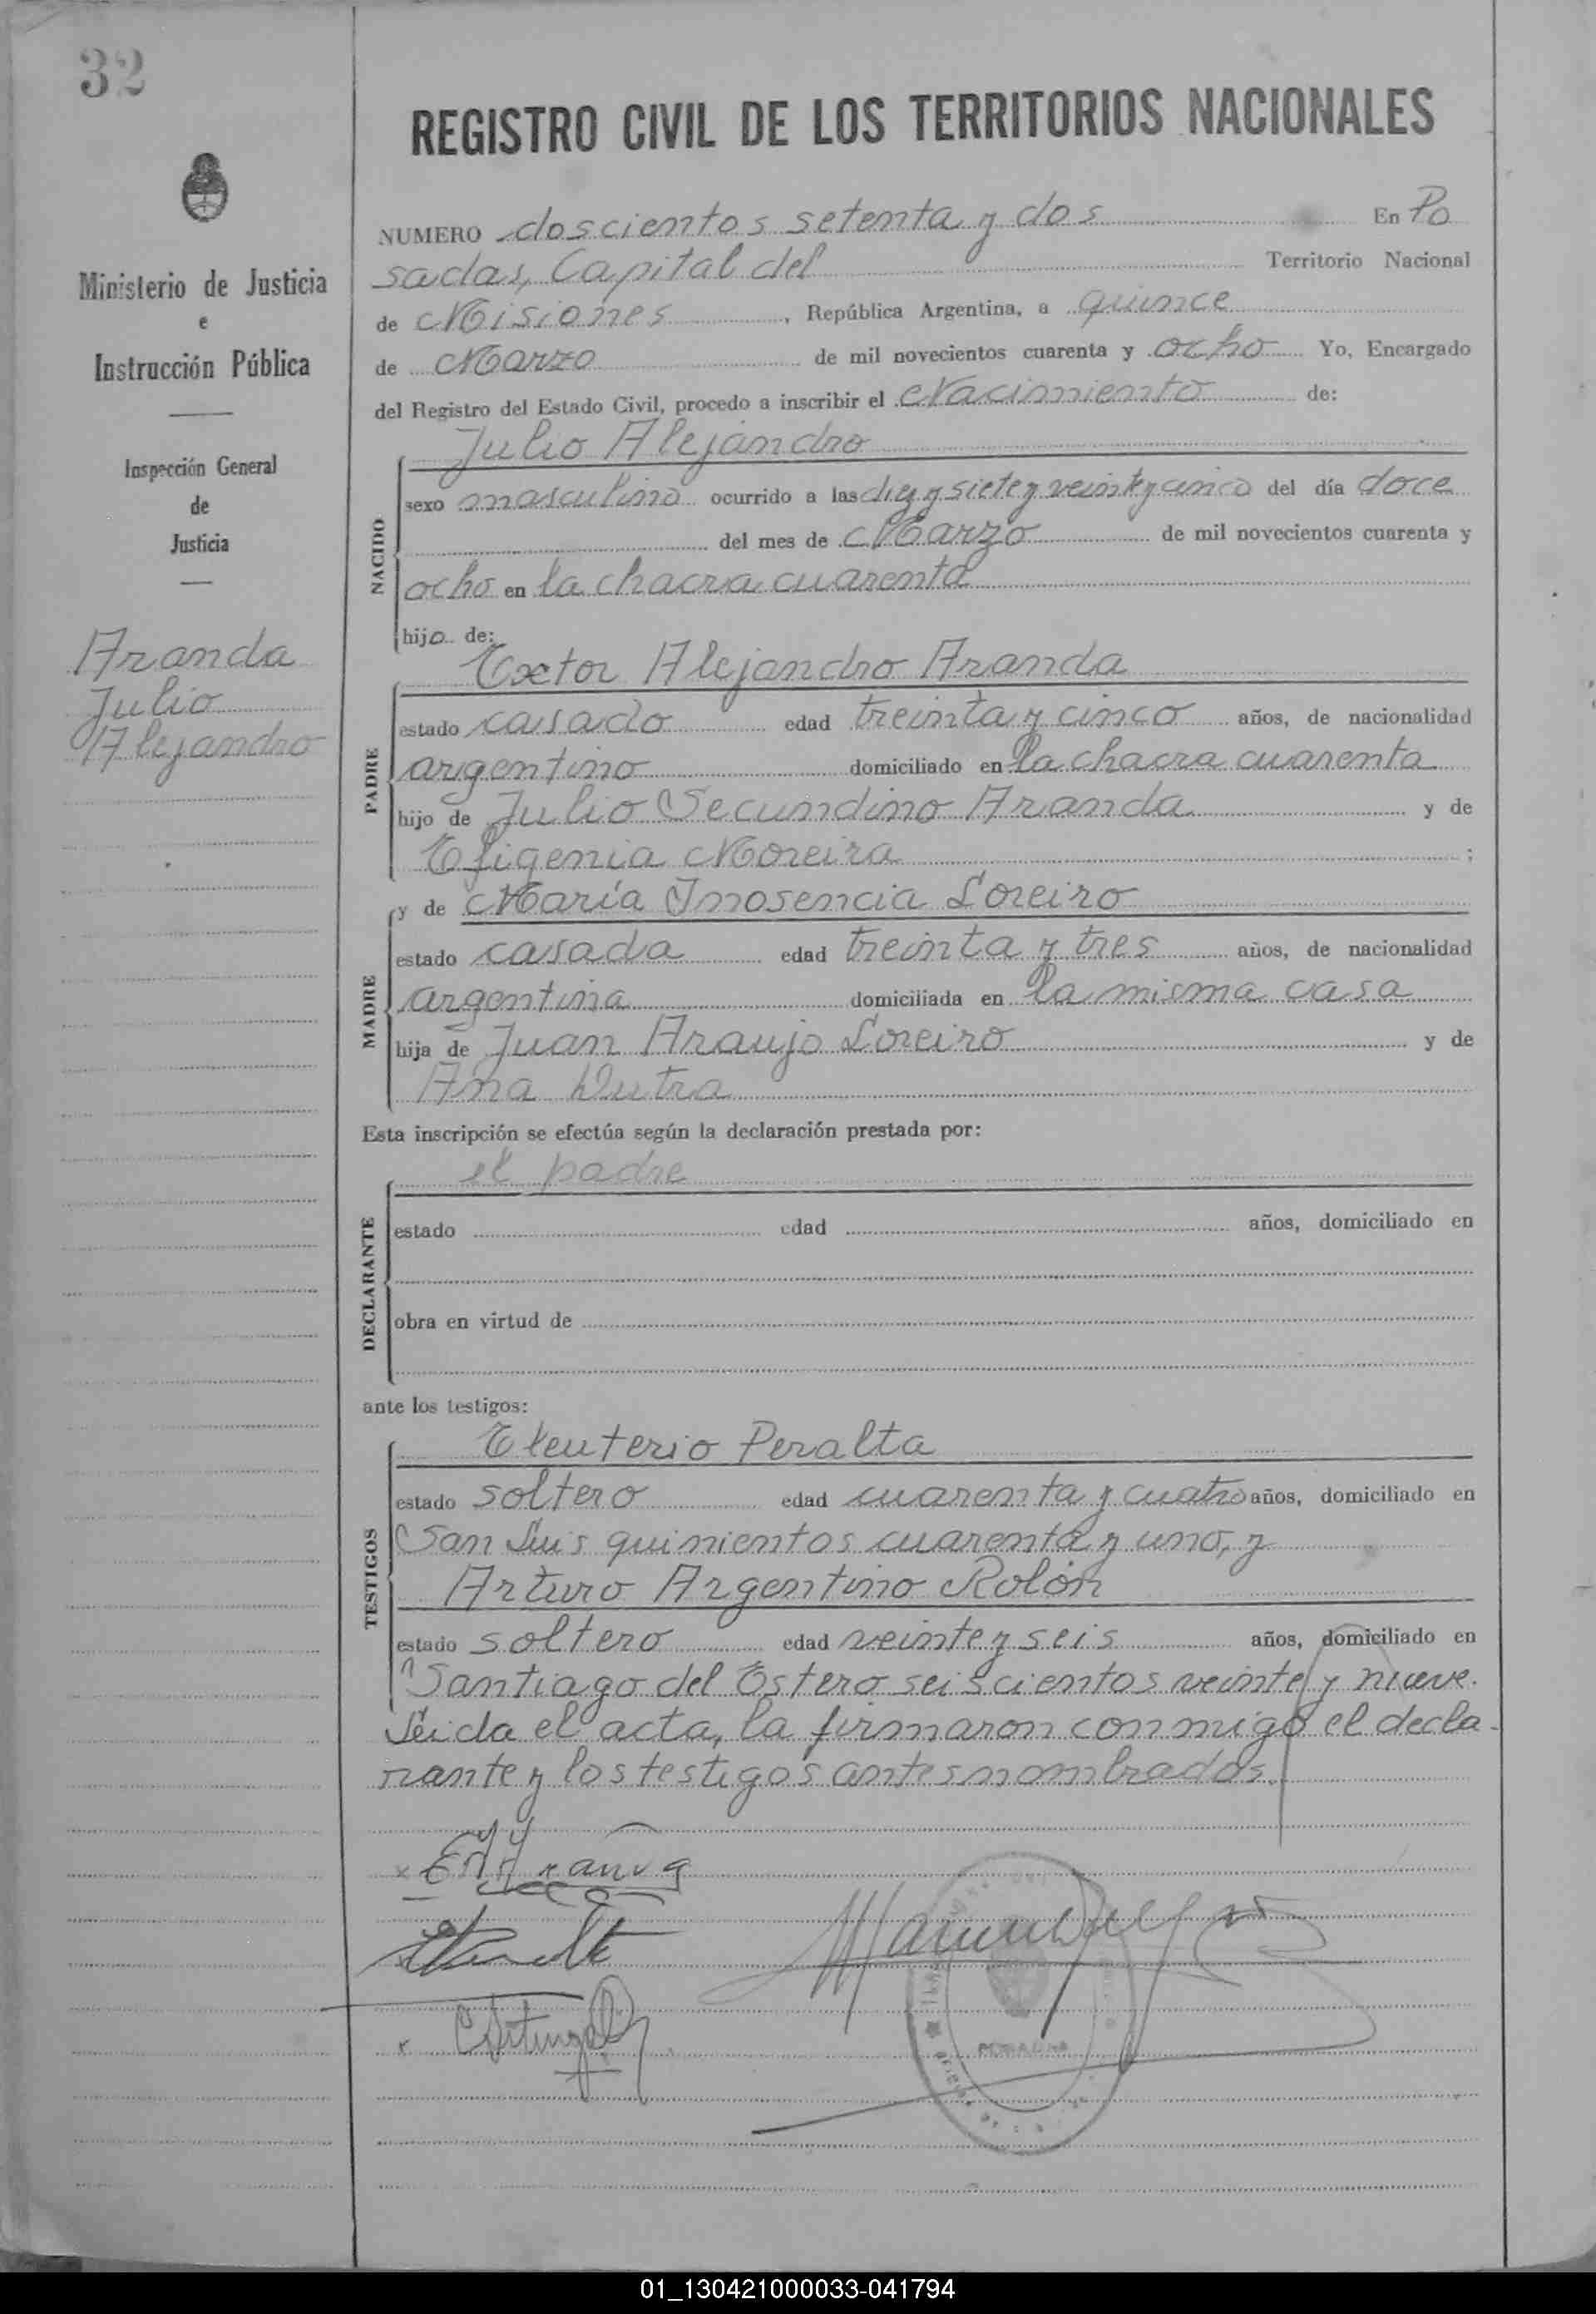 32
REGISTRO CIVIL DE LOS TERRITORIOS NACIONALES
Ministerio de Justicia
e
Instrucción Pública
Inspección General
de
Justicia
Aranda
Julio
Alejandro
NUMERO doscientos setenta y dos En Po
sadas, Capital del Territorio Nacional
de Misiones, República Argentina, a quince
de Marzo de mil novecientos cuarenta y ocho Yo, Encargado
del Registro del Estado Civil, procedo a inscribir el Nacimiento de:
Julio Alejandro
NACIDO
sexo masculino ocurrido a las diez y siete y veinte y cinco del día doce
del mes de Marzo de mil novecientos cuarenta y
ocho en la chacra cuarenta
hijo de:
Extor Alejandro Aranda
PADRE
estado casado edad treinta y cinco años, de nacionalidad
argentino domiciliado en la chacra cuarenta
hijo de Julio Secundino Aranda y de
Efigenia Moreira ;
y de María Inosencia Loreiro
MADRE
estado casada edad treinta y tres años, de nacionalidad
argentina domiciliada en la misma casa
hija de Juan Araujo Loreiro y de
Ana Dutra
Esta inscripción se efectúa según la declaración prestada por:
el padre
DECLARANTE
estado edad años, domiciliado en
obra en virtud de
ante los testigos:
Eleuterio Peralta
TESTIGOS
estado soltero edad cuarenta y cuatro años, domiciliado en
San Luis quinientos cuarenta y uno, y
Arturo Argentino Rolón
estado soltero edad veinte y seis años, domiciliado en
Santiago del Estero seiscientos veinte y nueve.
Leida el acta, la firmaron conmigo el decla-
rante y los testigos antes nombrados.
POSADAS
01_130421000033-041794